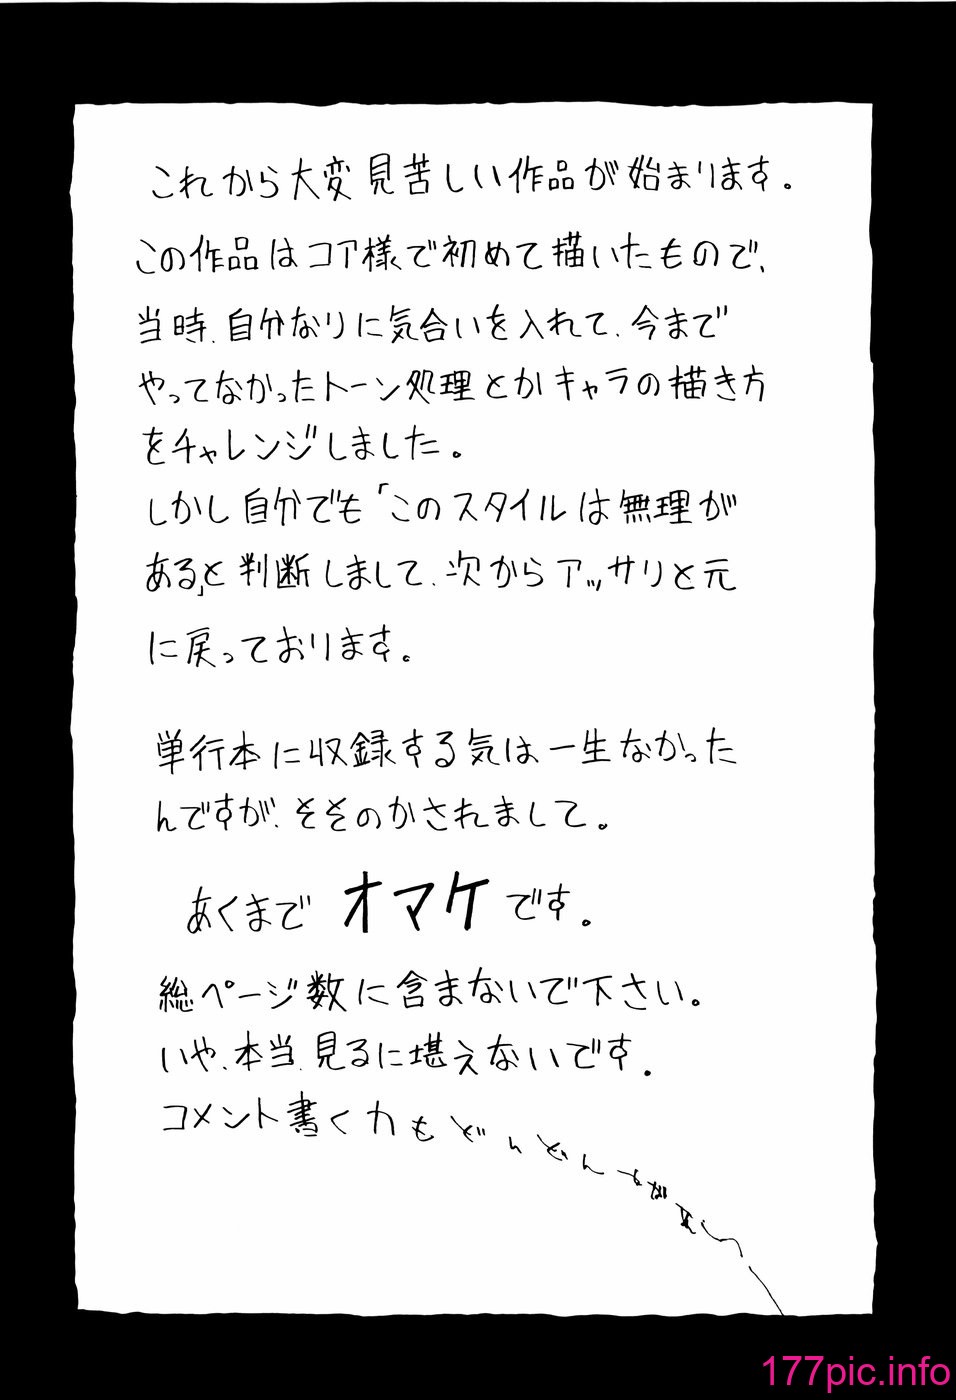 これから大変見苦しい作品が始まります。
この作品はコア様で初めて描いたもので、
当時、自分なりに気合いを入れて、今まで
やってなかったトーン処理とかキャラの描き方
をチャレンジしました。
しかし自分でも「このスタイルは無理が
ある」と判断しまして、次からアッサリと元
に戻っております。
単行本に収録する気は一生なかった
んですが、そそのかされまして。
あくまでオマケです。
総ページ数に含まないで下さい。
いや、本当、見るに堪えないです。
コメント書く力もどんどん
177pic.info